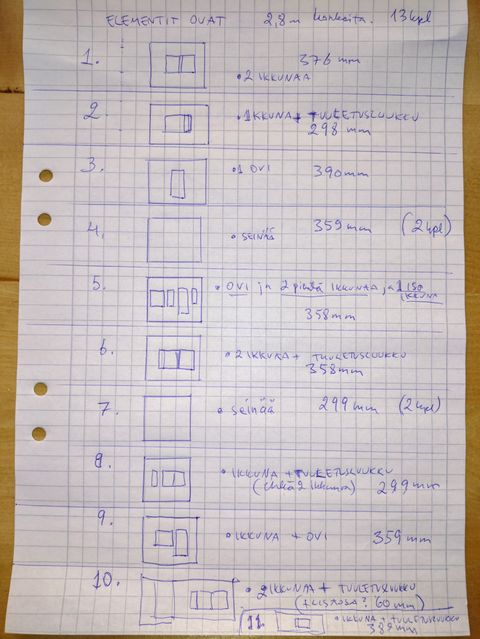 ELEMENTIT OVAT 2,8m korkeita. 13kpl
1. 376 mm
• 2 IKKUNAA
2. • 1 IKKUNA + TUULETUSLUUKKU
298 mm
3. • 1 OVI 390mm
4. • SEINÄÄ 359 mm (2 kpl)
5. • OVI ja 2 pientä IKKUNAA, ja 1 ISO
IKKUNA
358mm
6. • 2 IKKUNAA + TUULETUSLUUKKU
358mm
7. • Seinää 299 mm (2 kpl)
8. • IKKUNA + TUULETUSLUUKKU
(ehkä 2 ikkunaa) 299mm
9. • IKKUNA + OVI 359mm
10. • 2 IKKUNAA + TUULETUSLUUKKU
60 mm)
11. • IKKUNA + TUULETUSLUUKKU